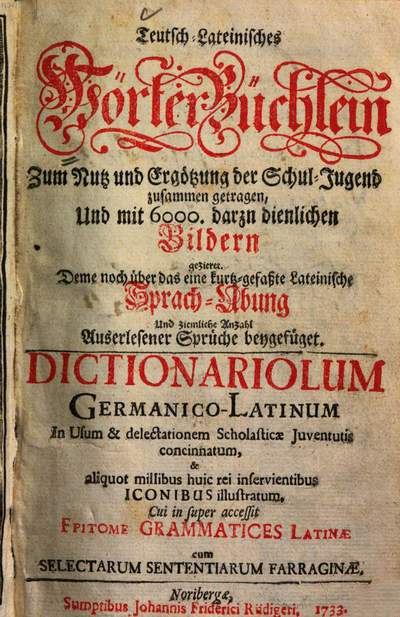 Teutsch-Lateinisches
Wörter-Büchlein
Zum Nutz und Ergötzung der Schul-Jugend
zusammen getragen,
Und mit 6000. darzu dienlichen
Bildern
gezieret.
Deme noch über das eine kurtz-gefaßte Lateinische
Sprach-Ubung
Und ziemliche Anzahl
Auserlesener Sprüche beygefüget.
DICTIONARIOLUM
GERMANICO-LATINUM
In Usum & delectationem Scholasticæ Juventutis
concinnatum,
&
aliquot millibus huic rei inservientibus
ICONIBUS illustratum,
Cui in super accessit
EPITOME GRAMMATICES LATINÆ
cum
SELECTARUM SENTENTIARUM FARRAGINÆ.
Noribergæ,
Sumptibus Johannis Friderici Rüdigeri, 1733.